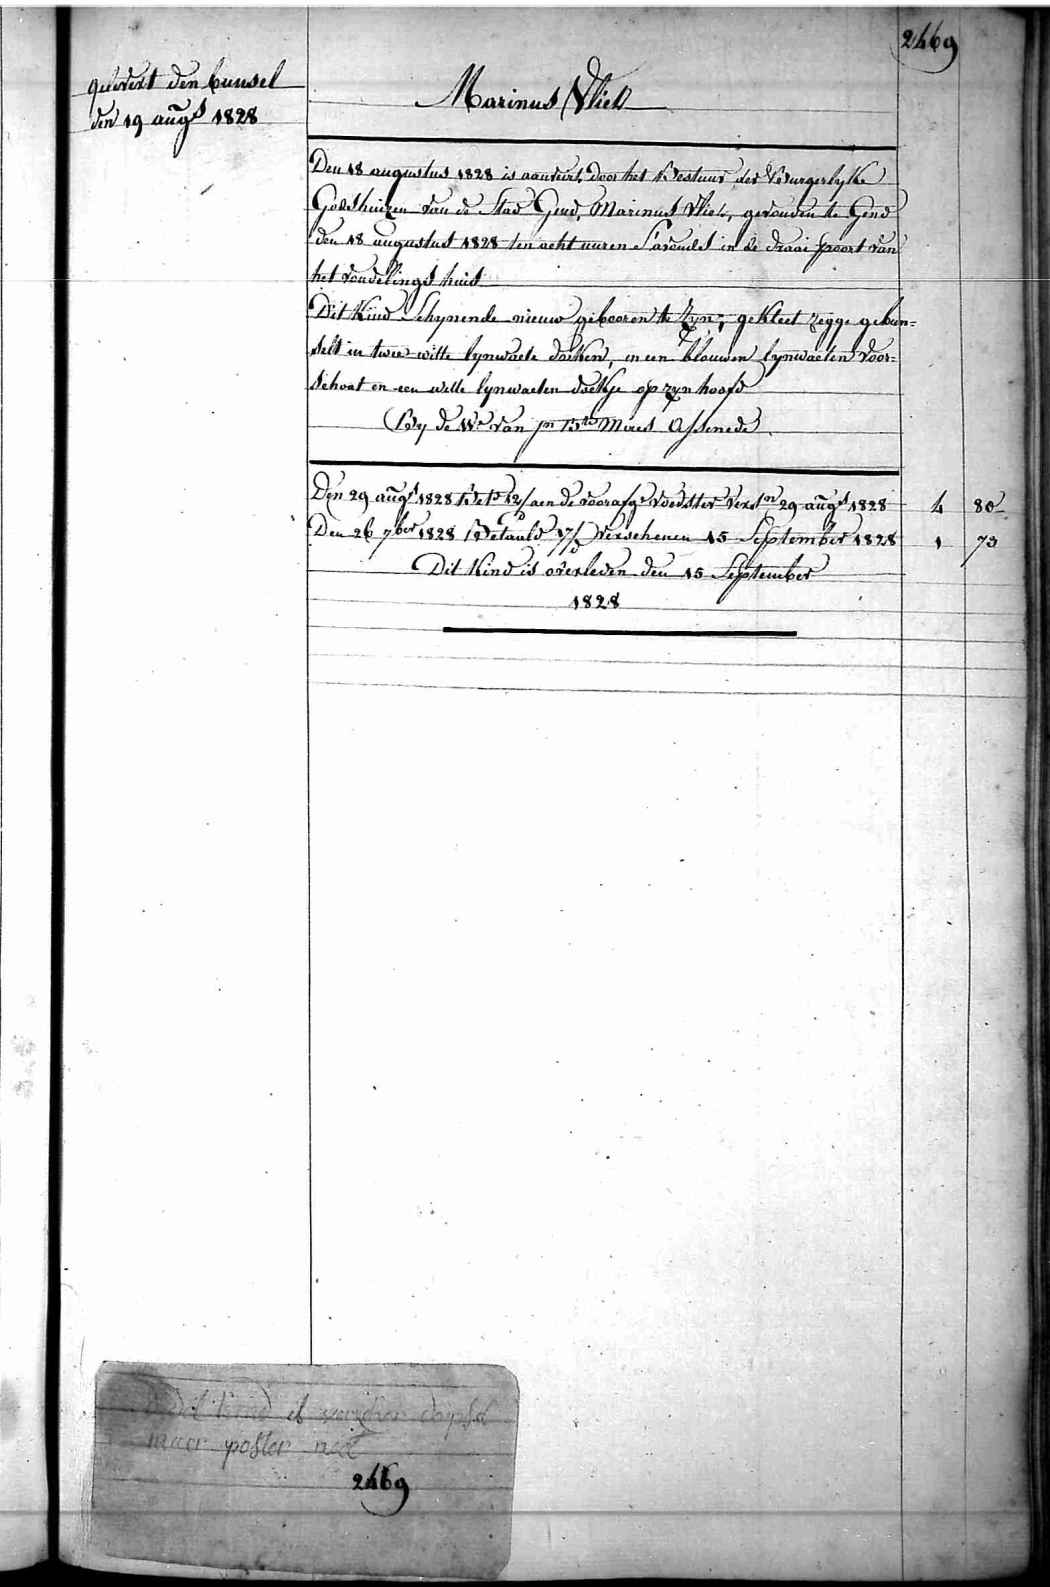 2469
gelevert den bunsel
den 19 augs 1828
Marinus Vliek
Den 18 augustus 1828 is aanveirt, door het Bestuur der Burgerlyke
Godshuizen van de Stad Gend, Marinus Vliek, gevonden te Gend
den 18 augustus 1828 ten acht uuren S'avonds in de draai poort van
het vondelings huis
Dit Kind Schynende nieuw gebooren te Zyn; gekleet zegge gebun=
selt in twee witte lynwaete doeken, in een blauwen lynwaeten voor=
schoot en een witte lynwaeten doekje op zyn hoofd
By de We van Jn Bte Maes Assenede
Den 29 augs 1828 Bete 12/ aen de voorafge voedster versn 29 augs 1828 4 80
Den 26 7ber 1828 Betaald 17/ verschenen 15 September 1828 1 73
Dit Kind is overleden den 15 September
1828
dit kind is
maer poster niet
2469